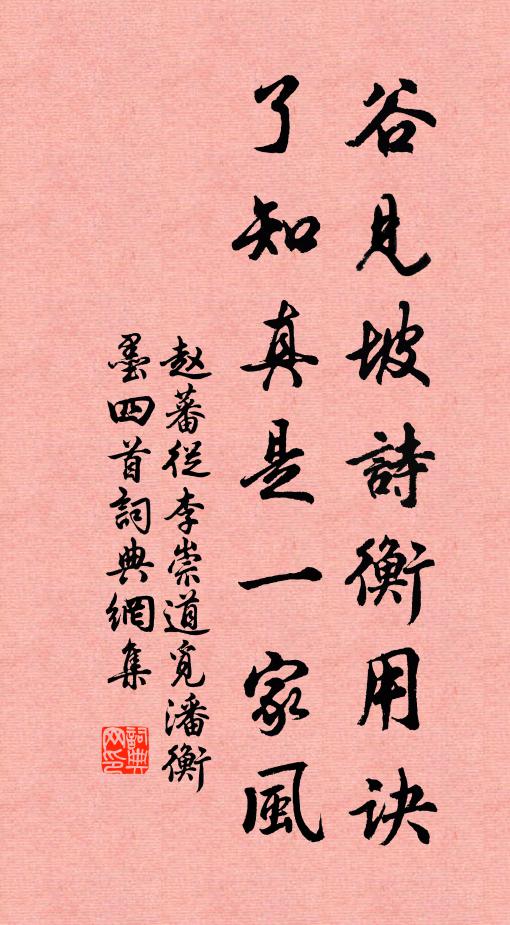 谷見坡詩衡用诀
了知真是一家風
赵蕃從李崇道覓潘衡
墨四首詞典網集
詞典網印